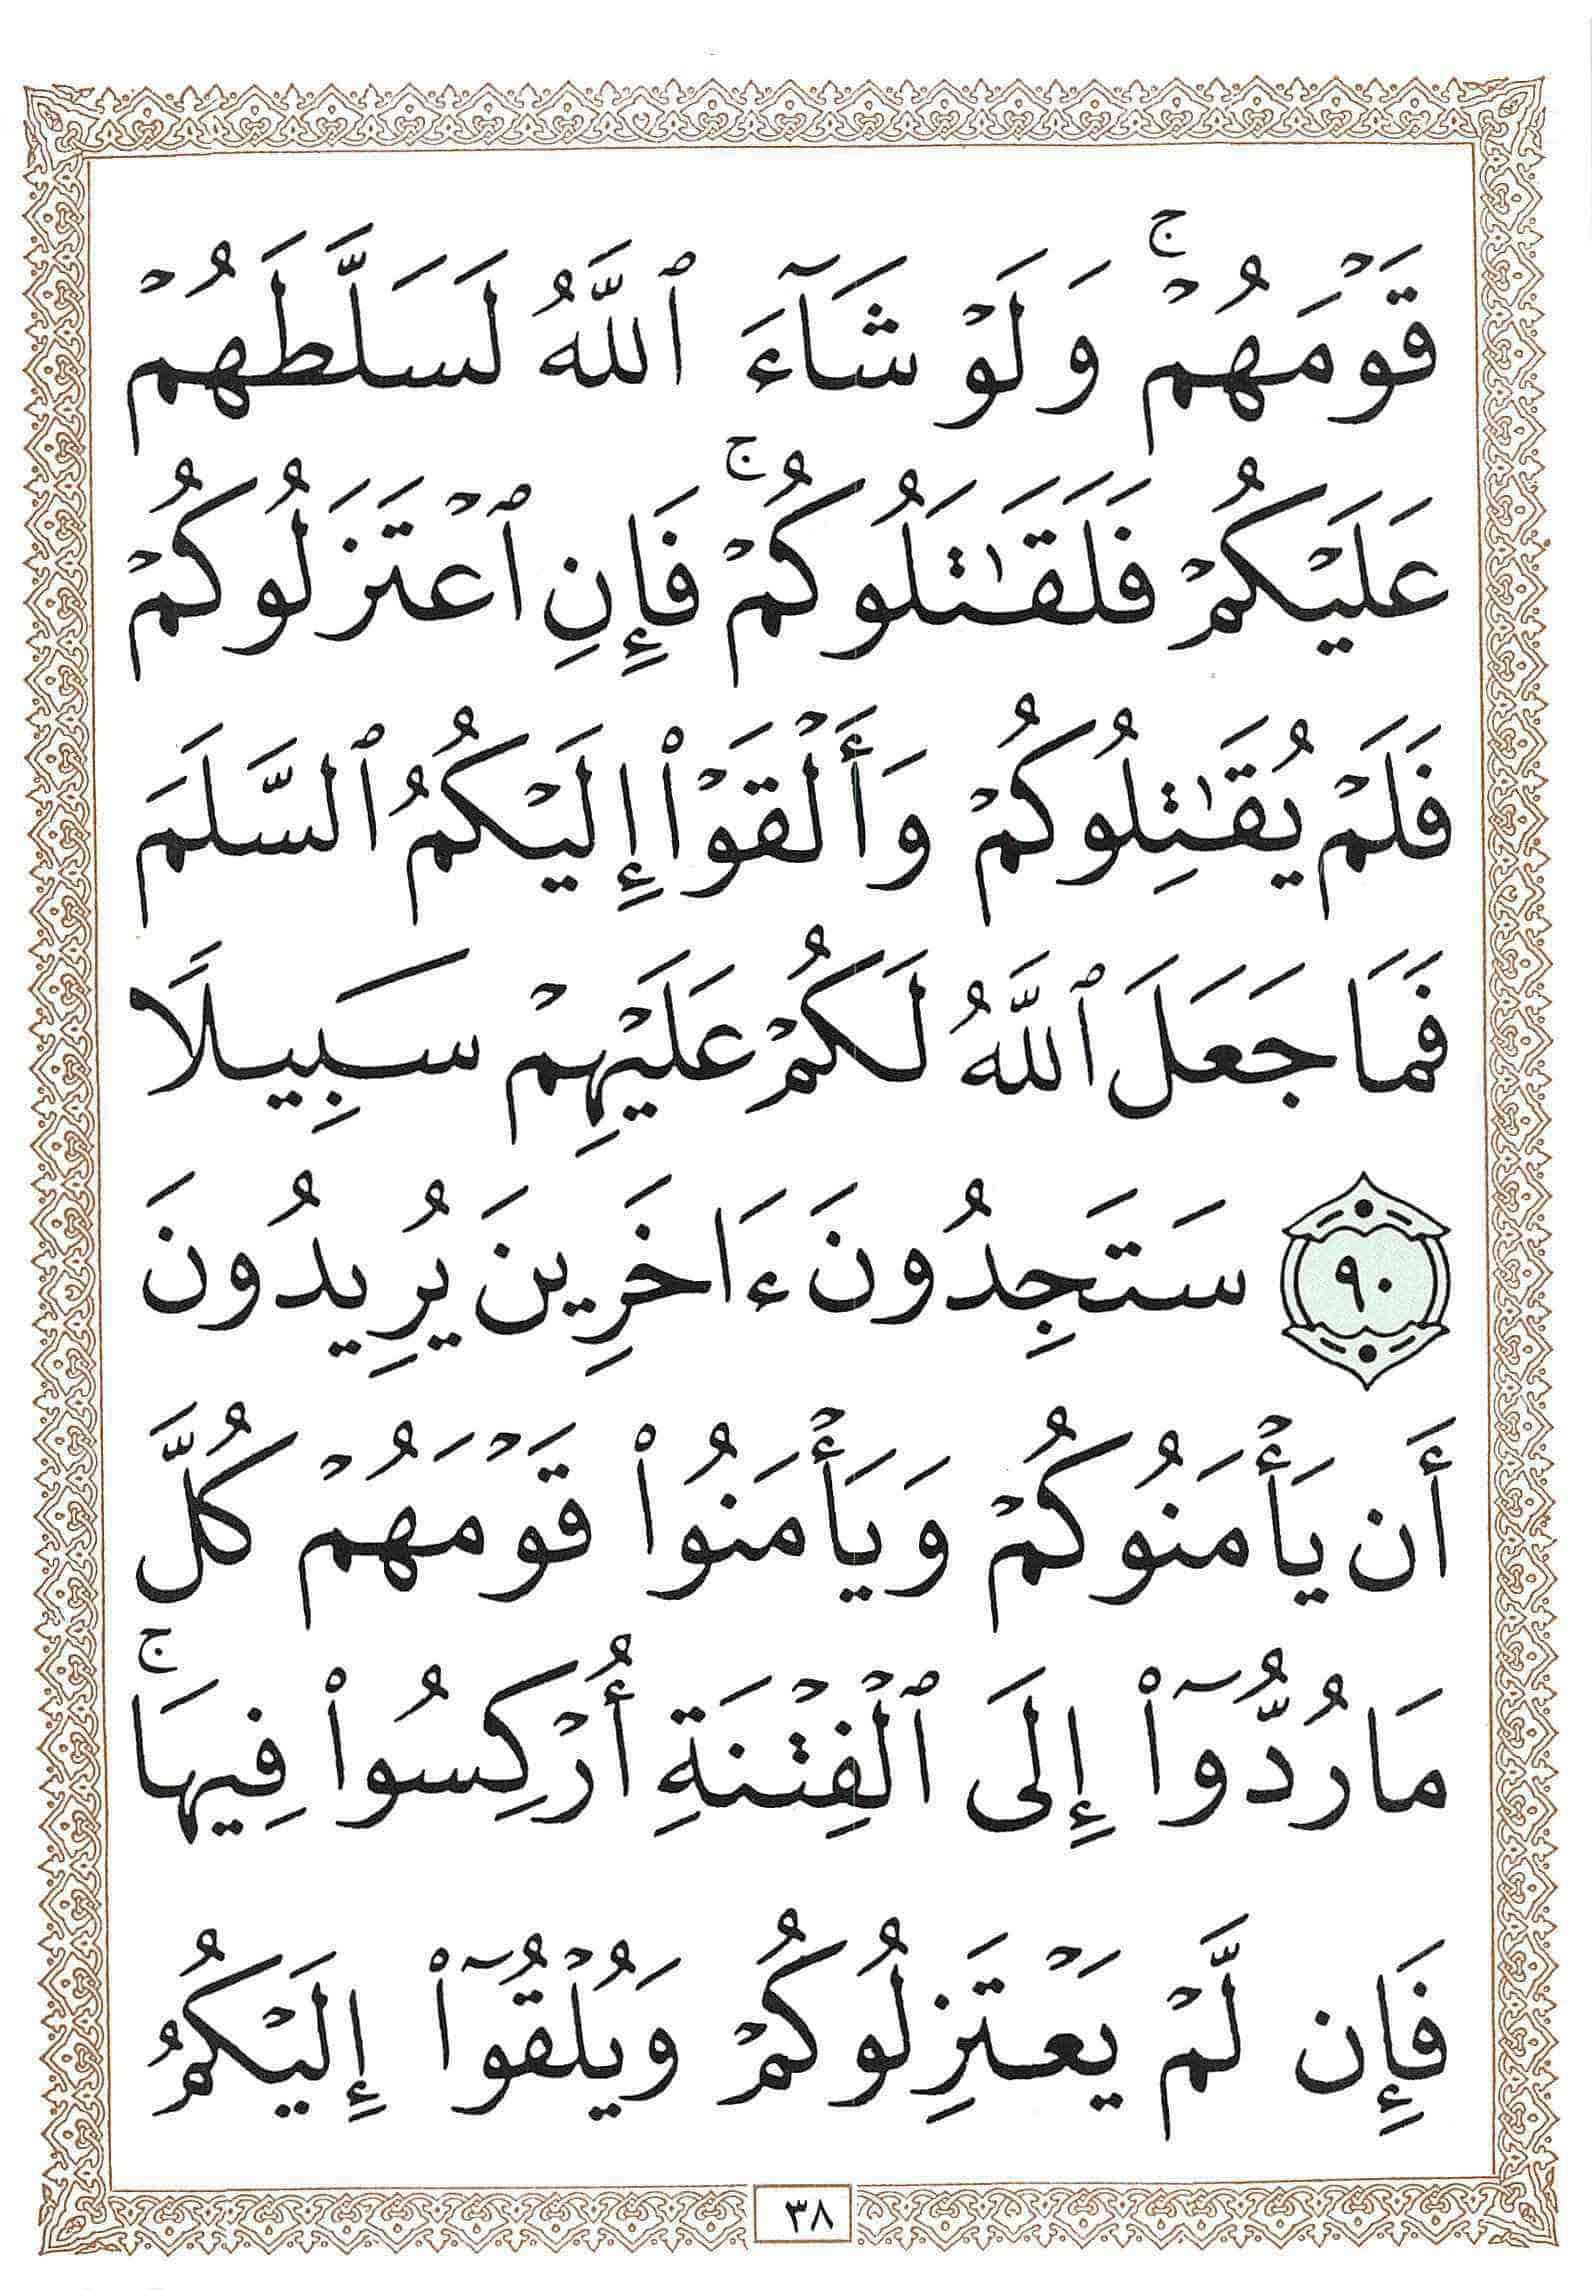 قَوْمَهُمْ ۚ وَلَوْ شَآءَ ٱللَّهُ لَسَلَّطَهُمْ
عَلَيْكُمْ فَلَقَـٰتَلُوكُمْ ۚ فَإِنِ ٱعْتَزَلُوكُمْ
فَلَمْ يُقَـٰتِلُوكُمْ وَأَلْقَوْا۟ إِلَيْكُمُ ٱلسَّلَمَ
فَمَا جَعَلَ ٱللَّهُ لَكُمْ عَلَيْهِمْ سَبِيلًا
٩٠ سَتَجِدُونَ ءَاخَرِينَ يُرِيدُونَ
أَن يَأْمَنُوكُمْ وَيَأْمَنُوا۟ قَوْمَهُمْ كُلَّ
مَا رُدُّوٓا۟ إِلَى ٱلْفِتْنَةِ أُرْكِسُوا۟ فِيهَا ۚ
فَإِن لَّمْ يَعْتَزِلُوكُمْ وَيُلْقُوٓا۟ إِلَيْكُمُ
٣٨